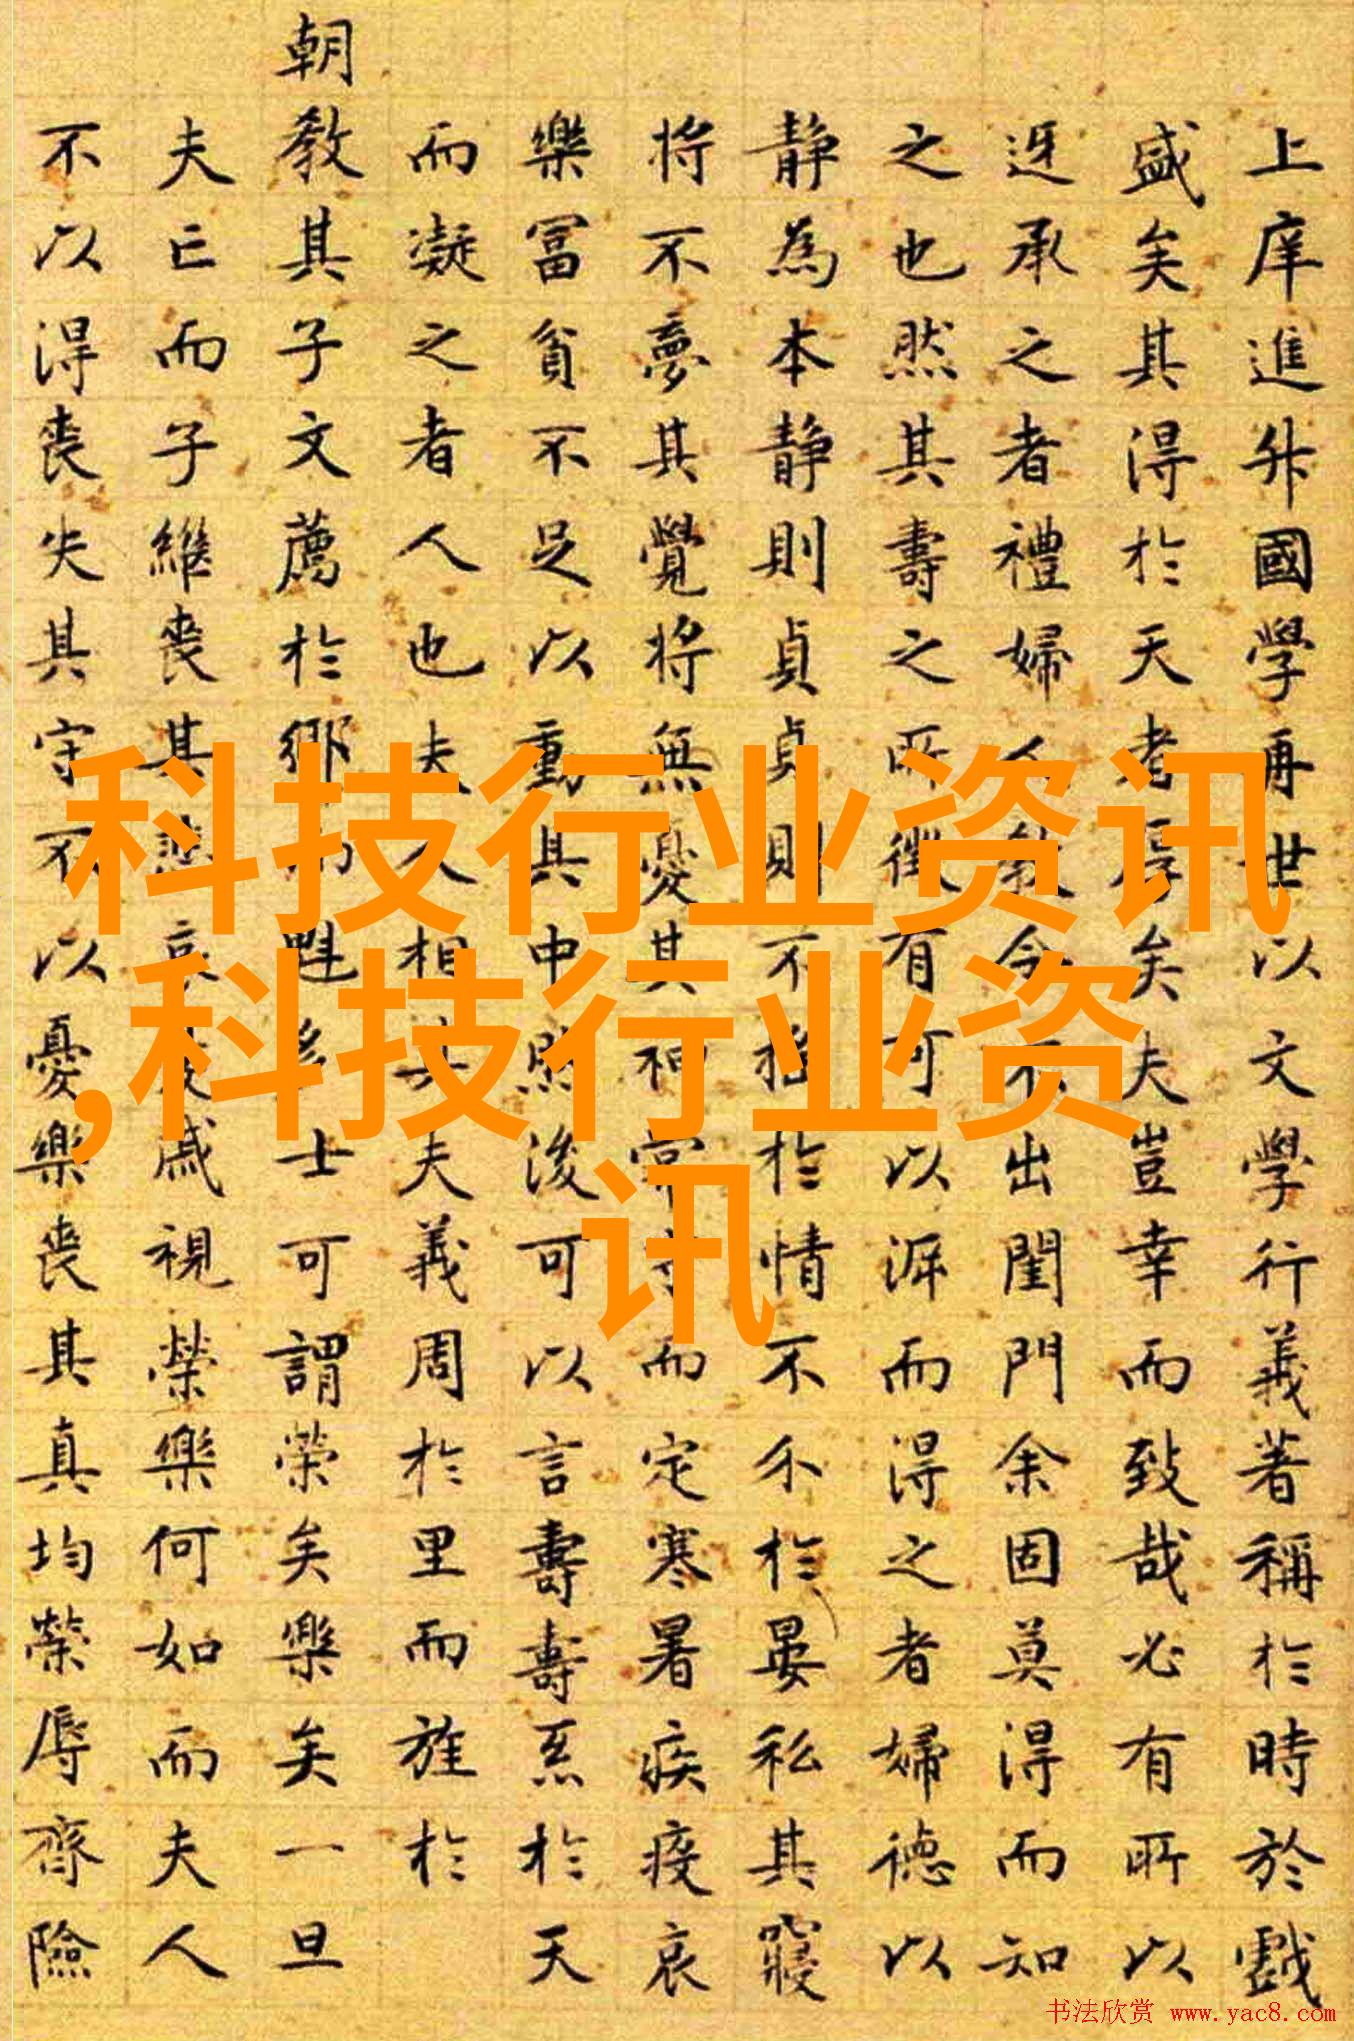 上庠進升國學再世以文學行義著稱於時於戲
盛矣其得於天者厚矣夫豈幸而致哉必有所以
迓承之者禮婦人教令不出閨門余固莫得而知
之也然其壽之所徵有可以泝而得之者婦德以
靜為本靜則貞貞則不撓於情不介於晏私其寢
將不夢其覺將無憂其其神常守而定寒暑疾疫哀
樂冨貧不足以動其中然後可以言壽壽系於天
而凝之者人也夫人相其夫義周於里而旌於
朝教其子文薦於鄉而魁多士可謂榮矣樂矣一旦
夫亡而子繼喪其悲哀憂戚視榮樂何如而夫人
不以得喪失其守不以憂樂喪其真均榮辱齊險
科技行业资讯
,科技行业资
讯
书法欣赏 www.yac8.com